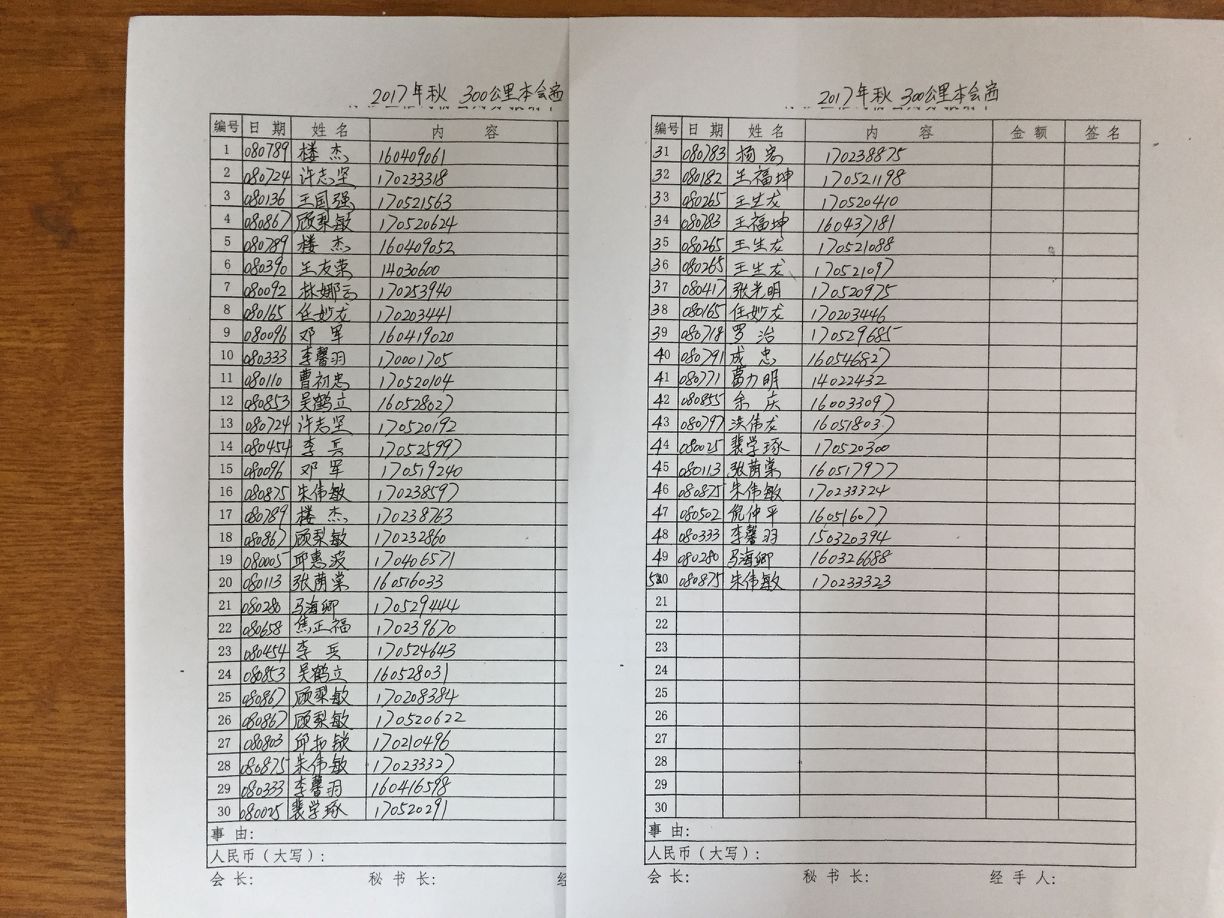 2017年秋 300公里本会
编号 日期 姓名 内容
1 080789 楼杰 160409061
2 080724 许志坚 170233318
3 080136 王国强 170521563
4 080867 顾梨敏 170520624
5 080789 楼杰 160409052
6 080390 王友荣 14030600
7 080092 林娜 170253940
8 080165 任妙龙 170203441
9 080096 邓军 160419020
10 080333 李馨羽 170001705
11 080110 曹初忠 170520104
12 080853 吴鹤立 160528027
13 080724 许志坚 170520192
14 080454 李兵 170525997
15 080096 邓军 170519240
16 080875 朱伟敏 170238597
17 080789 楼杰 170238763
18 080867 顾梨敏 170232860
19 080005 邱惠波 170406571
20 080113 张荫棠 160516033
21 080280 马海卿 170529444
22 080658 焦正福 170239670
23 080454 李兵 170524643
24 080853 吴鹤立 160528031
25 080867 顾梨敏 170208384
26 080867 顾梨敏 170520622
27 080803 邱 170210496
28 080875 朱伟敏 170233327
29 080333 李馨羽 160416598
30 080025 裴学琢 170520291
事由:
人民币(大写):
会长: 秘书长: 经
2017年秋 300公里本会
编号 日期 姓名 内容 金额 签名
31 080783 杨宏 170238875
32 080182 王福坤 170521198
33 080265 王生龙 170520410
34 080783 王福坤 160437181
35 080265 王生龙 170521088
36 080265 王生龙 170521097
37 080417 张光明 170520975
38 080165 任妙龙 170203446
39 080718 罗治 170529685
40 080791 成忠 160546827
41 080771 葛力明 14022432
42 080855 余庆 160033097
43 080797 洪伟龙 160518037
44 080025 裴学琢 170520300
45 080113 张荫棠 160517977
46 080875 朱伟敏 170233324
47 080502 倪仲平 160516077
48 080333 李馨羽 150320394
49 080280 马海卿 160326688
50 080875 朱伟敏 170233323
21
22
23
24
25
26
27
28
29
30
事由:
人民币(大写):
会长: 秘书长: 经手人: